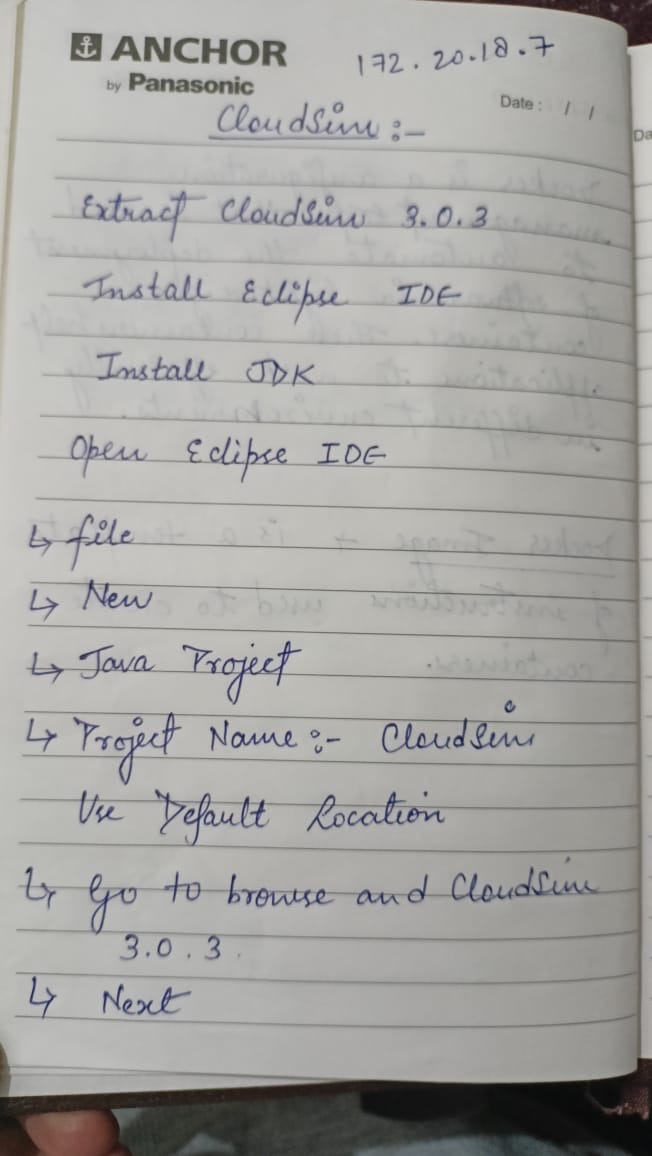 ANCHOR
by Panasonic
172.20.18.7
Date : / /
CloudSim :-
Extract CloudSim 3.0.3
Install Eclipse IDE
Install JDK
Open Eclipse IDE
↳ file
↳ New
↳ Java Project
↳ Project Name :- CloudSim
Use Default Location
↳ Go to browse and CloudSim
3.0.3.
↳ Next
Da